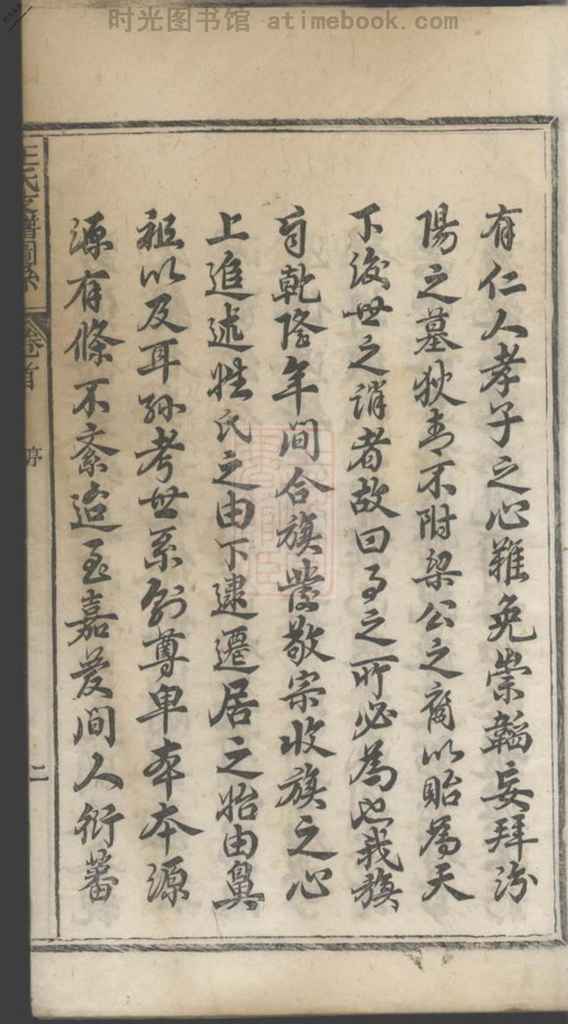 时光图书馆 atimebook.com
有仁人孝子之心難免崇韜妄拜汾
陽之墓狄青不附梁公之裔以貽為天
下後世之誚者故曰事之所必為也我族
自乾隆年間合族營敬宗收族之心
上追述姓氏之由下逮遷居之始由鼻
祖以及耳孫考世系別尊卑本本源
源有條不紊迨至嘉慶間人衍蕃
王氏支譜 卷首 序 二